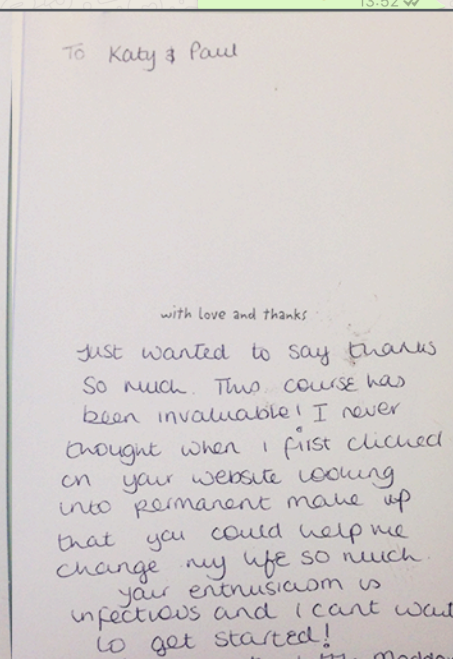 13:52
To Katy & Paul
with love and thanks
Just wanted to say thanks
so much. This course has
been invaluable! I never
thought when i first clicked
on your website looking
into permanent make up
that you could help me
change my life so much.
your enthusiasm is
infectious and i cant wait
to get started!